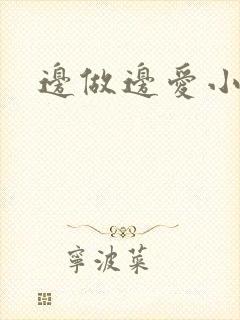 邊做邊愛小
寧波菜